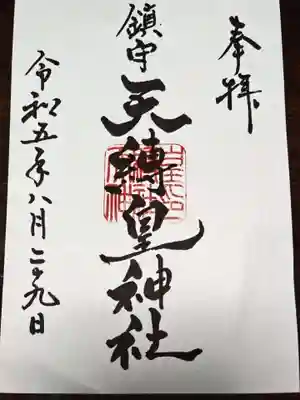 奉拝
鎮守
天縛皇神社
令和五年八月二十九日